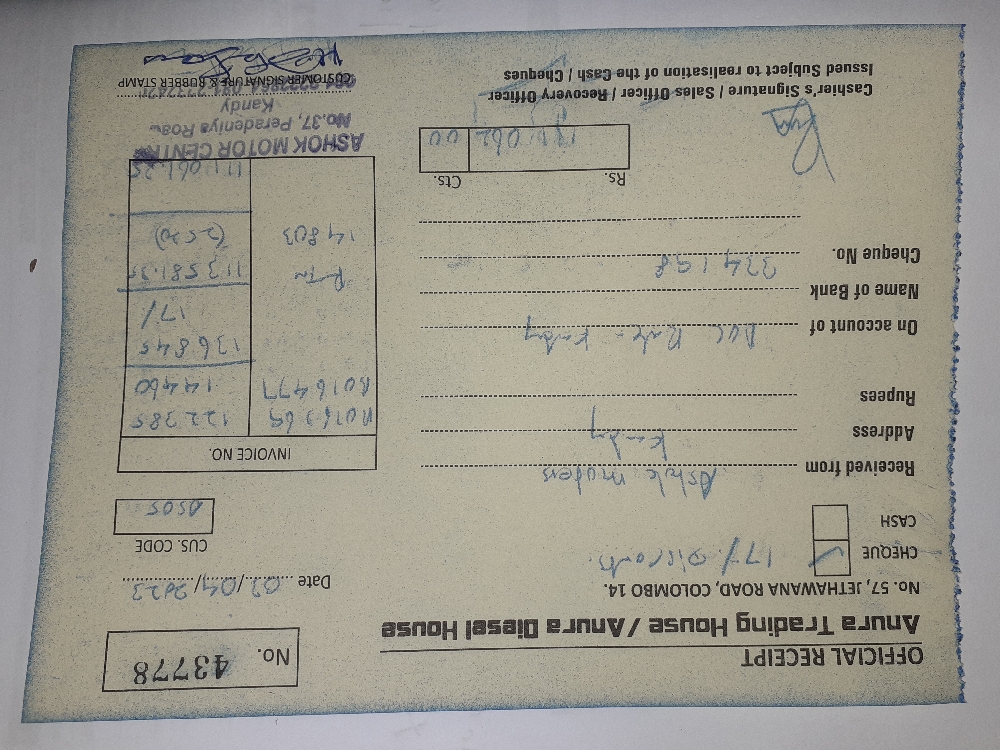 OFFICIAL RECEIPT
Anura Trading House / Anura Diesel House
No. 57, JETHAWANA ROAD, COLOMBO 14.
No. 43778
Date 02/04/2023
CHEQUE 17% Discount.
CASH
CUS. CODE
A505
Received from Ashok motors
Address Kandy
Rupees
On account of Kandy
Name of Bank
Cheque No. 334198
INVOICE NO.
122385
R016477 14460
136845
17%
Rtn 113581.35
14803 (2520)
111061.35
Rs. Cts.
111,062 00
ASHOK MOTOR CENTRE
No.37, Peradeniya Road
Kandy
CUSTOMER SIGNATURE & RUBBER STAMP
Cashier's Signature / Sales Officer / Recovery Officer
Issued Subject to realisation of the Cash / Cheques